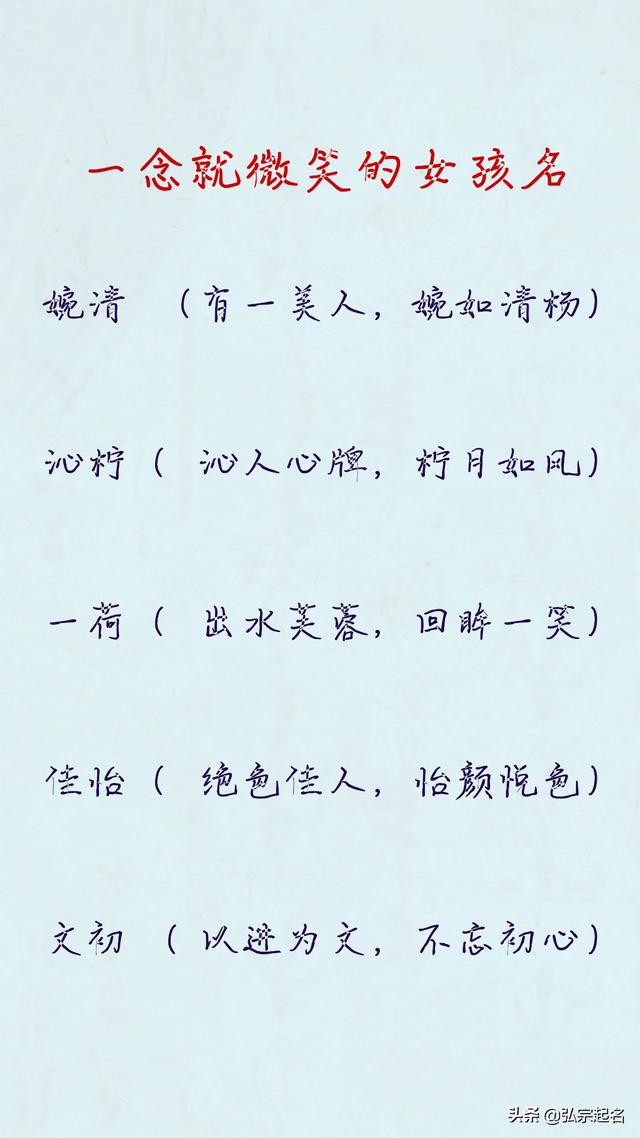 一念就微笑的女孩名
婉清 (有一美人, 婉如清杨)
沁柠 (沁人心牌, 柠月如风)
一荷 (出水芙蓉, 回眸一笑)
佳怡 (绝色佳人, 怡颜悦色)
文初 (以迹为文, 不忘初心)
头条 @弘宗起名